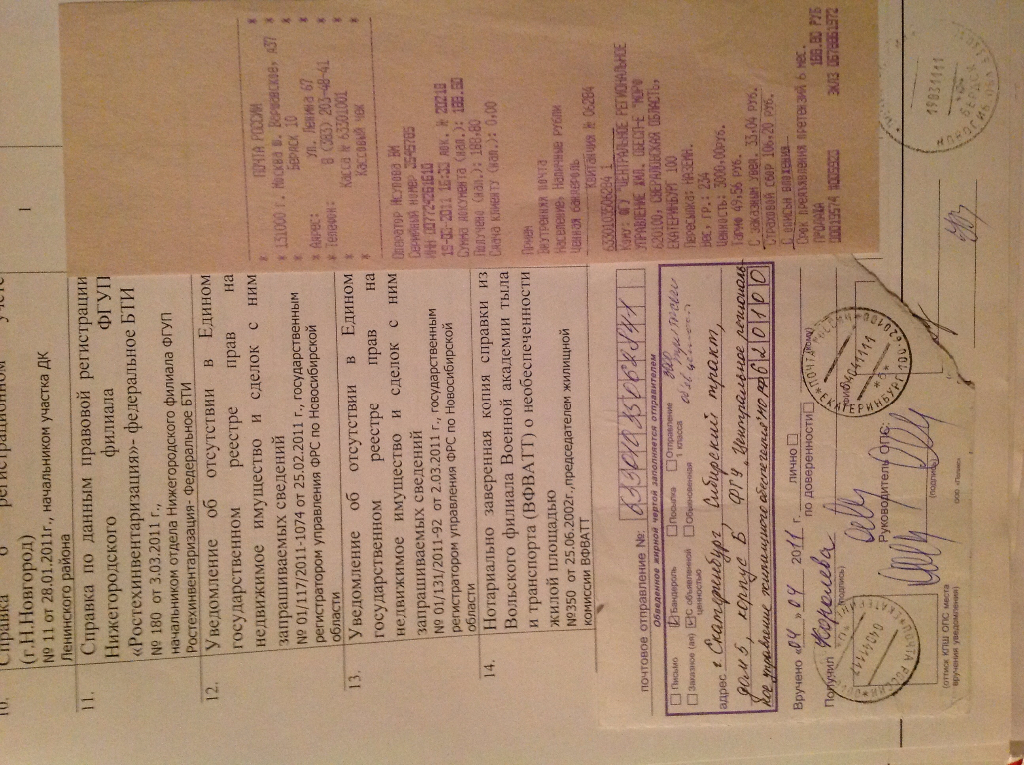 1
(г.Н.Новгород)
№ 11 от 28.01.2011г., начальником участка ДК
Ленинского района
11. Справка по данным правовой регистрации
Нижегородского филиала ФГУП
«Ростехинвентаризация»- федеральное БТИ
№ 180 от 3.03.2011 г.,
начальником отдела Нижегородского филиала ФГУП
Ростехинвентаризация- Федеральное БТИ
12. Уведомление об отсутствии в Едином
государственном реестре прав на
недвижимое имущество и сделок с ним
запрашиваемых сведений
№ 01/117/2011-1074 от 25.02.2011 г., государственным
регистратором управления ФРС по Новосибирской
области
13. Уведомление об отсутствии в Едином
государственном реестре прав на
недвижимое имущество и сделок с ним
запрашиваемых сведений
№ 01/131/2011-92 от 2.03.2011 г., государственным
регистратором управления ФРС по Новосибирской
области
14. Нотариально заверенная копия справки из
Вольского филиала Военной академии тыла
и транспорта (ВФВАТТ) о необеспеченности
жилой площадью
№350 от 25.06.2002г.,председателем жилищной
комиссии ВФВАТТ
ПОЧТА РОССИИ
131000 г. Москва
БЕРДСК 10
Адрес: ул. Ленина 67
Телефон:
Касса № 63301001
КАССОВЫЙ ЧЕК
Оператор
ИНН 007724261610
19-03-2011
Получено (нал.): 188,80
Сдача клиенту (нал.): 0,00
Прием
Внутренняя почта
Население: Наличные рубли
Ценная бандероль
Квитанция № 06284
Кому: ФГУ "ЦЕНТРАЛЬНОЕ РЕГИОНАЛЬНОЕ
620100, СВЕРДЛОВСКАЯ ОБЛАСТЬ,
ЕКАТЕРИНБУРГ 100
Пересылка: НАЗЕМН.
Вес, гр.: 234
Ценность: 3000,00руб.
Тариф 49,56 руб.
С заказным увед. 33,04 РУБ.
Страховой сбор 106,20 РУБ.
С описью вложения
Срок предъявления претензий 6 мес.
ПРОДАЖА 188.80 РУБ
почтовое отправление №:
Обведенное жирной чертой заполняется отправителем
Письмо Бандероль Посылка Отправление 1 класса
Заказное (ая) С объявленной ценностью Обыкновенное
адрес г. Екатеринбург, Сибирский тракт,
дом 5, корпус Б ФГУ „Центральное региональ-
ное управление жилищного обеспечения" МО РФ 620100
Вручено «04» 04 2011 г. лично
по доверенности
Получил
(подпись)
Руководитель ОПС:
(подпись)
(оттиск КПШ ОПС места
вручения уведомления)
ПОЧТА РОССИИ
ЕКАТЕРИНБУРГ 100
620100
04041111
19031111